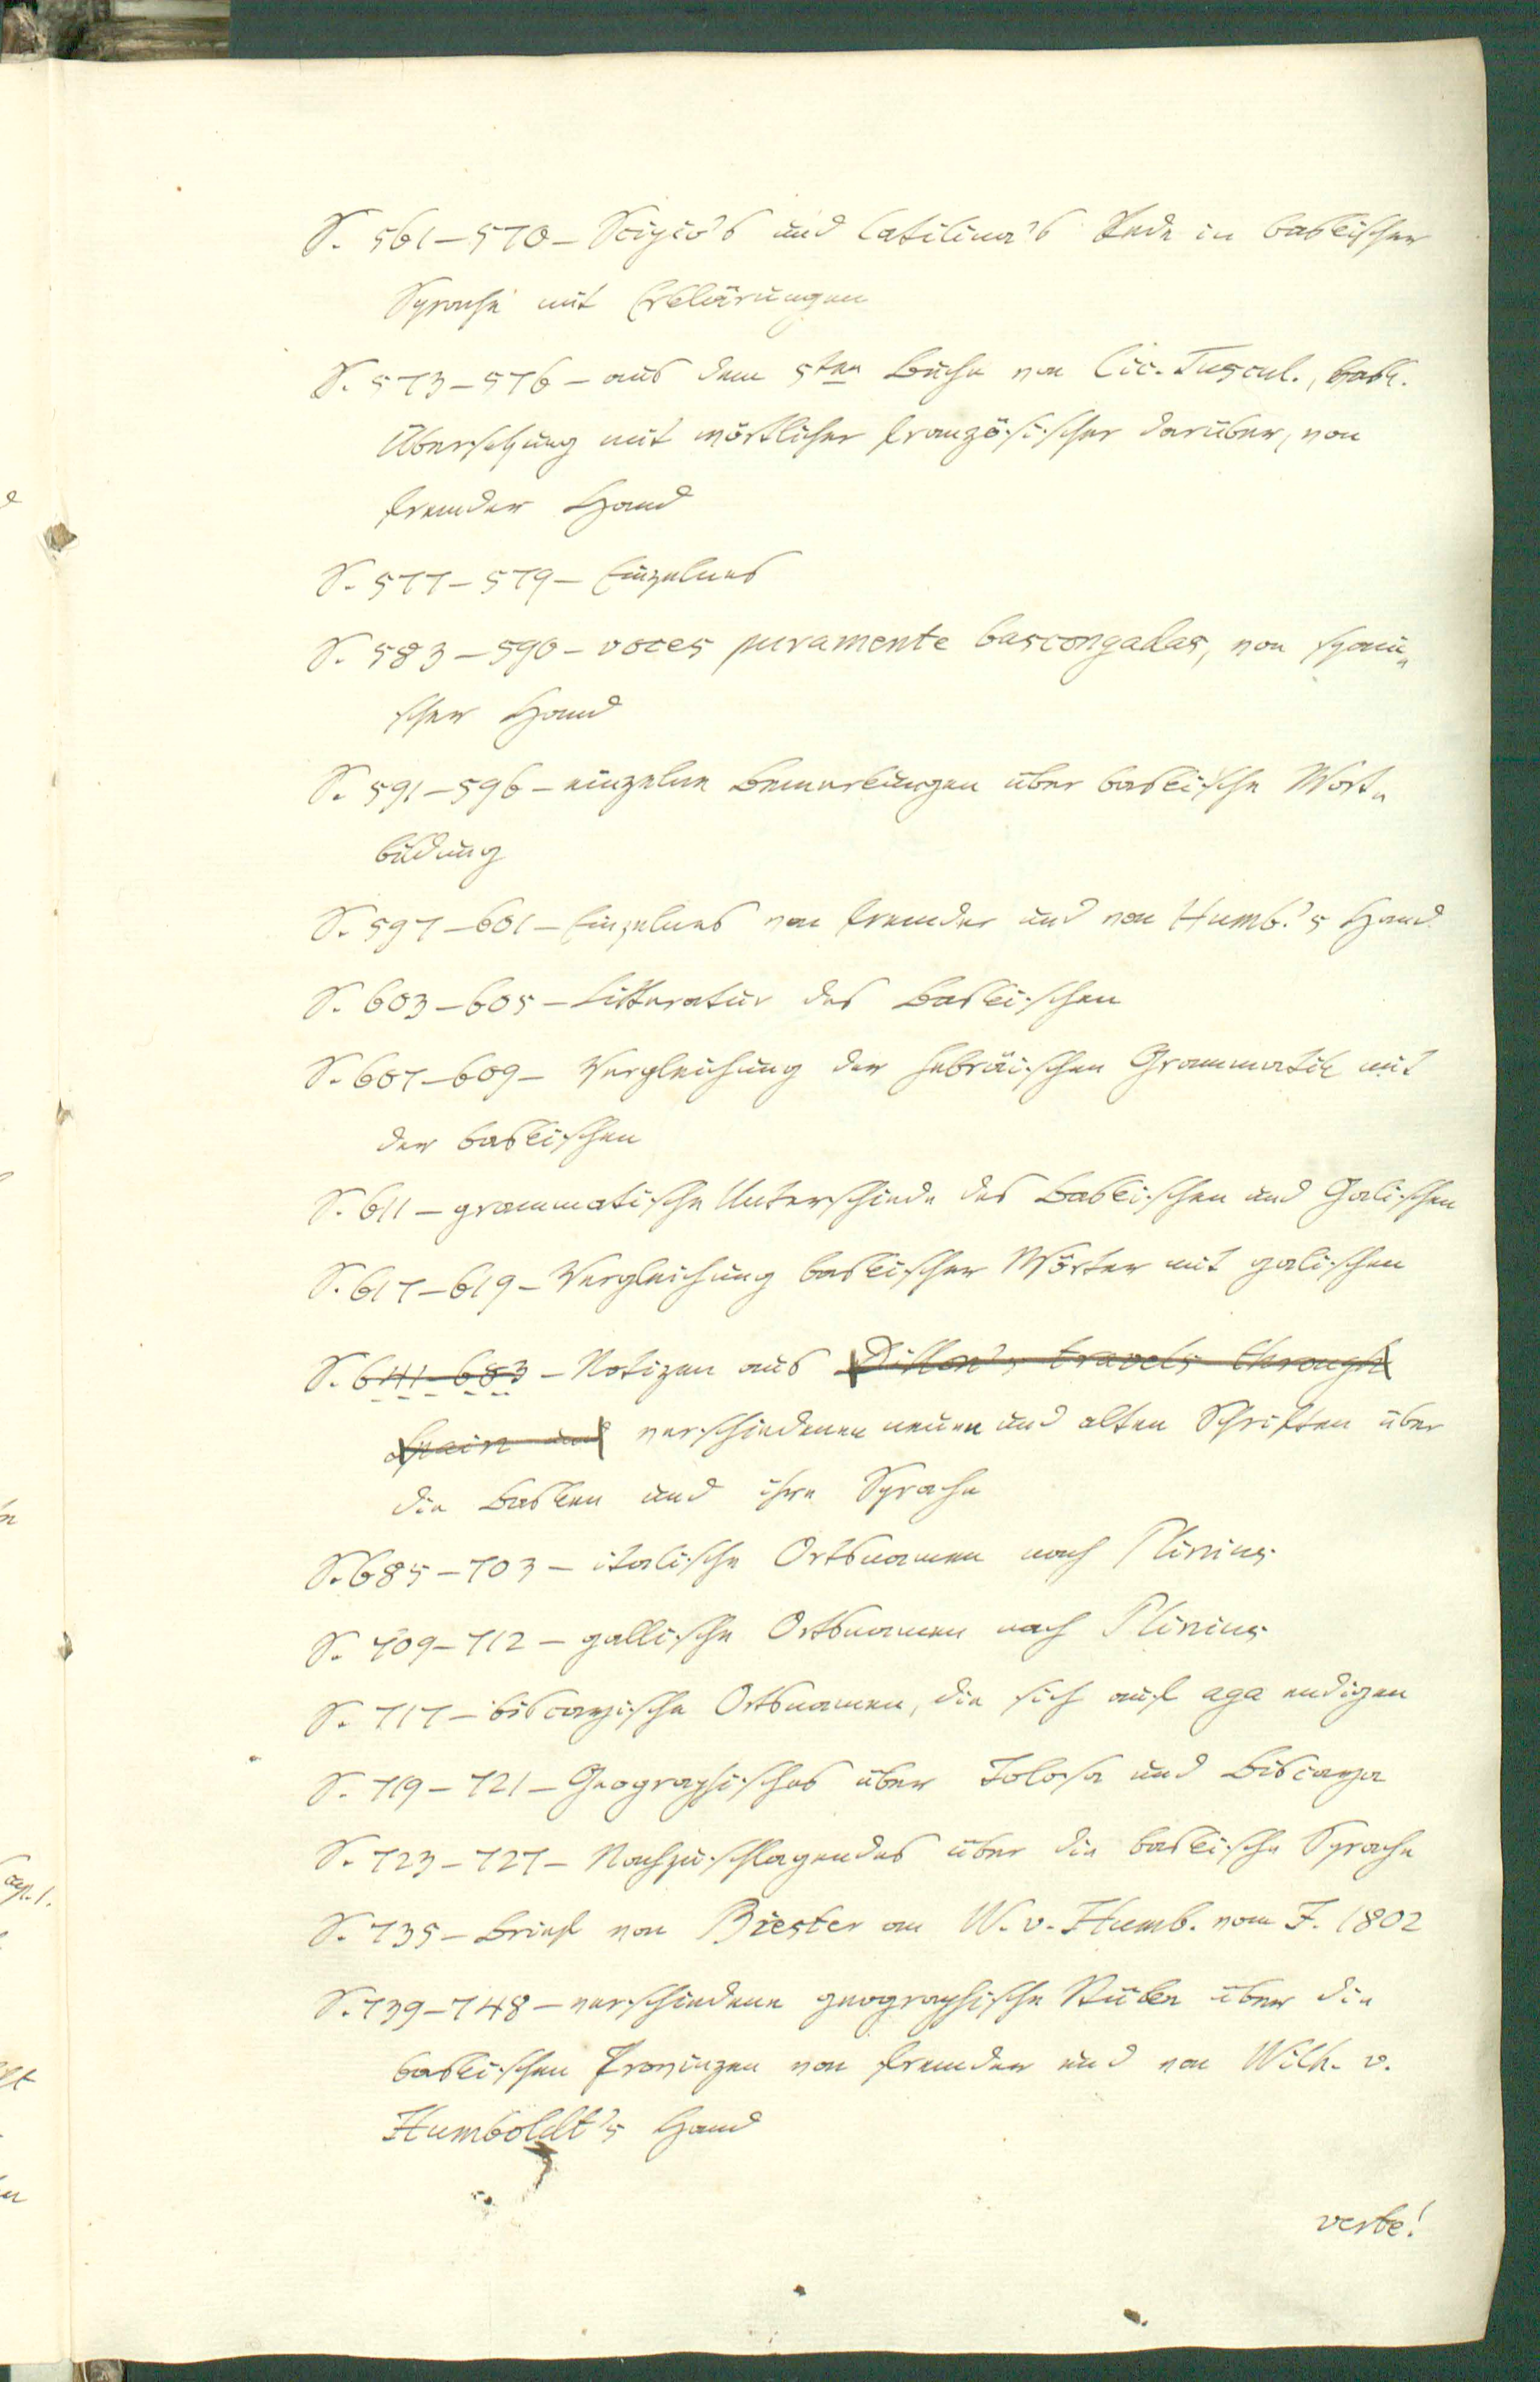 S. 561–570 – Scipio's und Catilina's Rede in baskischer
Sprache mit Erklärungen
S. 573–576 – aus dem 5ten Buche von Cic. Tuscul., bask.
Übersetzung mit wörtlicher französischer darüber, von
fremder Hand
S. 577–579 – Einzelnes
S. 583–590 – voces puramente bascongadas, von spani-
scher Hand
S. 591–596 – einzelne Bemerkungen über baskische Wort-
bildung
S. 597–601 – Einzelnes von fremder und von Humb.'s Hand
S. 603–605 – Litteratur des Baskischen
S. 607–609 – Vergleichung der hebräischen Grammatik mit
der baskischen
S. 611 – grammatische Unterschiede des Baskischen und Galischen
S. 617–619 – Vergleichung baskischer Wörter mit galischen
S. 641–683 – Notizen aus Dillon's travels through
Spain und verschiedenen neuen und alten Schriften über
die Basken und ihre Sprache
S. 685–703 – italische Ortsnamen nach Plinius
S. 709–712 – gallische Ortsnamen nach Plinius
S. 717 – biscayische Ortsnamen, die sich auf aga endigen
S. 719–721 – Geographisches über Tolosa und Biscaya
S. 723–727 – Nachzuschlagendes über die baskische Sprache
S. 735 – Brief von Biester an W. v. Humb. vom J. 1802
S. 739–748 – verschiedene geographische Stücke über die
baskischen Provinzen von fremder und von Wilh. v.
Humboldt's Hand
verte!